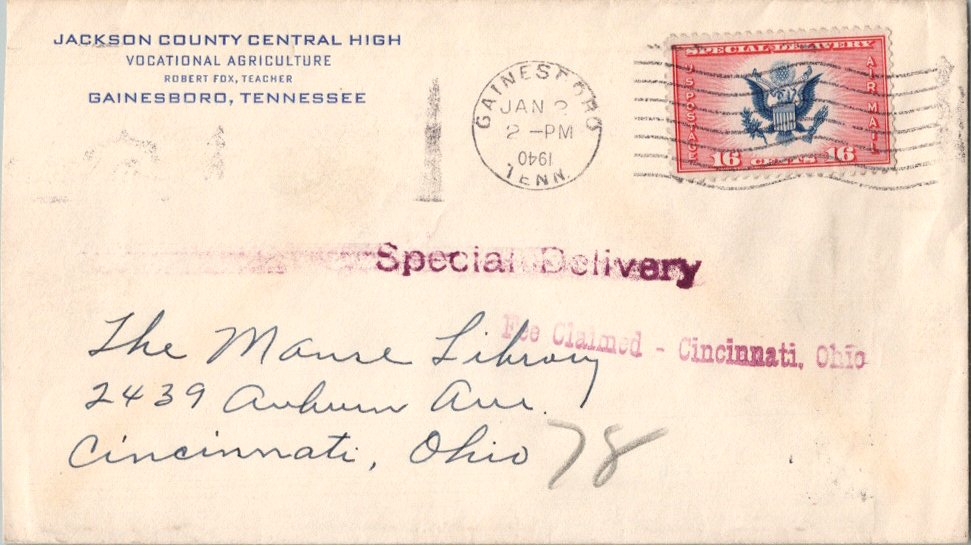 JACKSON COUNTY CENTRAL HIGH
VOCATIONAL AGRICULTURE
ROBERT FOX, TEACHER
GAINESBORO, TENNESSEE
GAINESBORO
JAN 2
2 -PM
1940
TENN.
SPECIAL DELIVERY
U.S. POSTAGE
AIR MAIL
16 CENTS 16
Special Delivery
Fee Claimed - Cincinnati, Ohio
The Manse Library
2439 Auburn Ave.
Cincinnati, Ohio
78